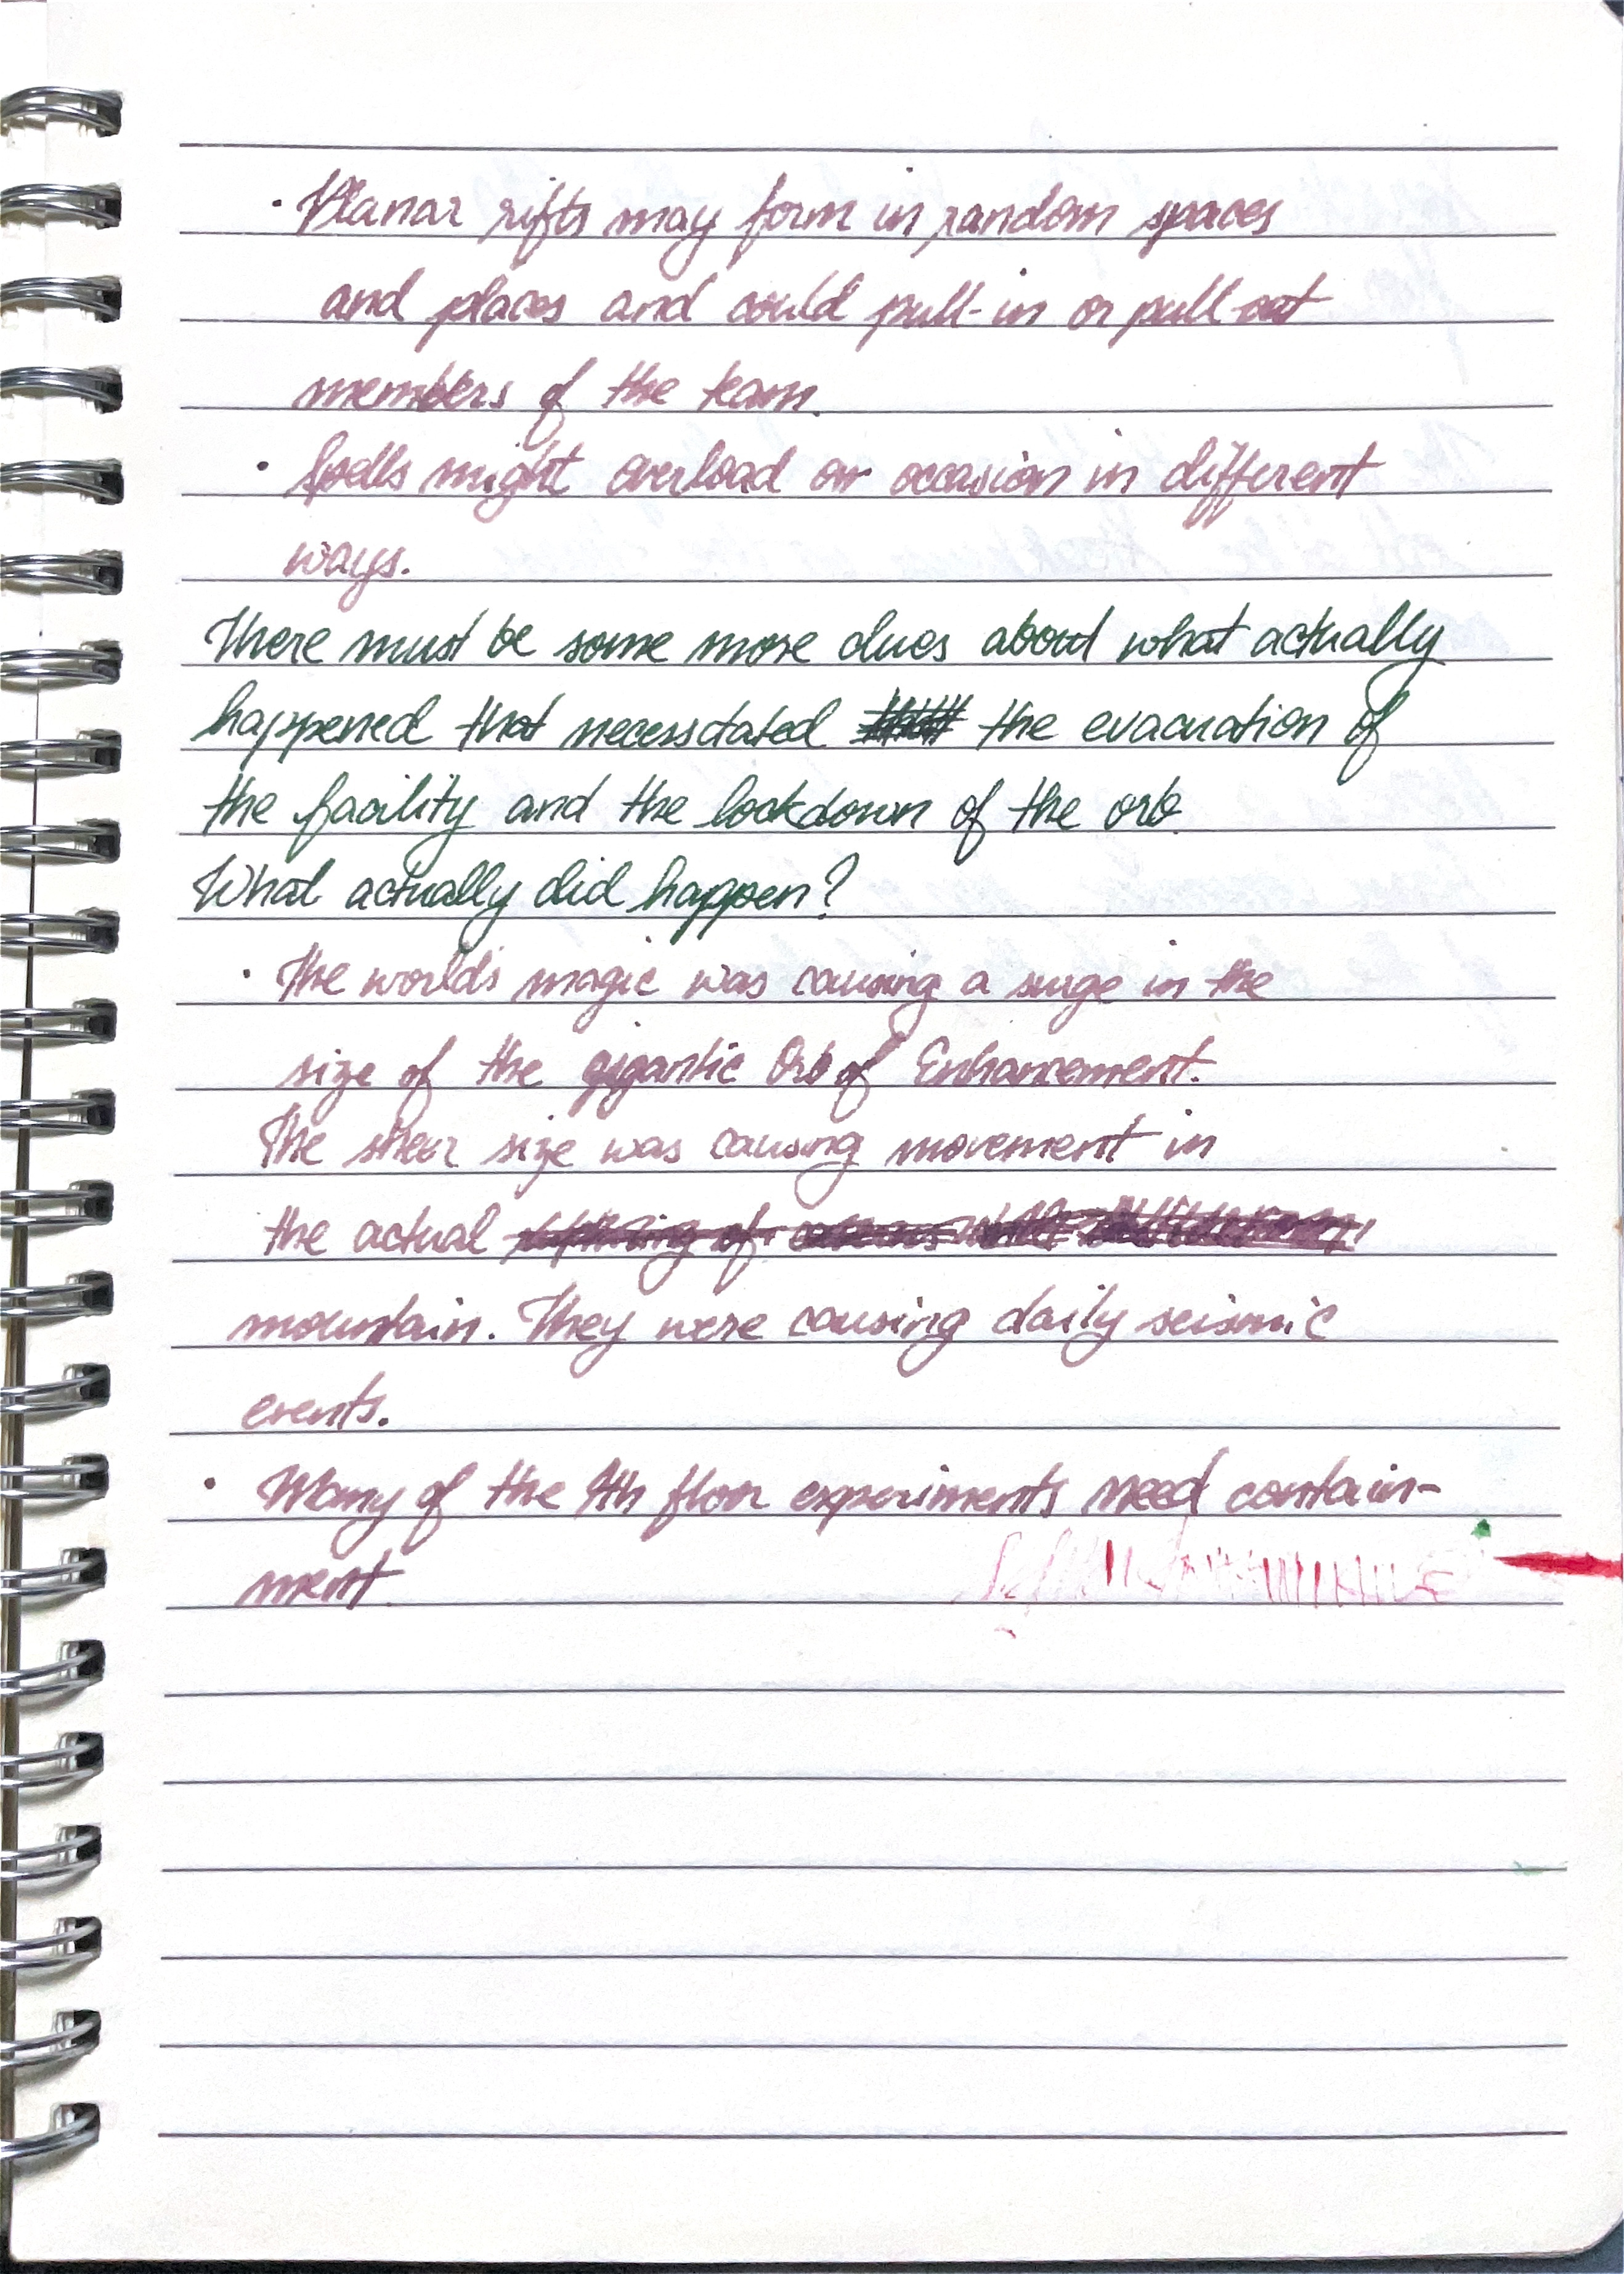 · Planar rifts may form in random spaces
and places and could pull-in or pull out
members of the team.
· Spells might overload on occasion in different
ways.
There must be some more clues about what actually
happened that necesstated the evacuation of
the facility and the lockdown of the orb.
What actually did happen?
· The worlds magic was causing a surge in the
size of the gigantic Orb of Enhancement.
The sheer size was causing movement in
the actual
mountain. They were causing daily seismic
events.
· Many of the 9th floor experiments need contain-
ment.